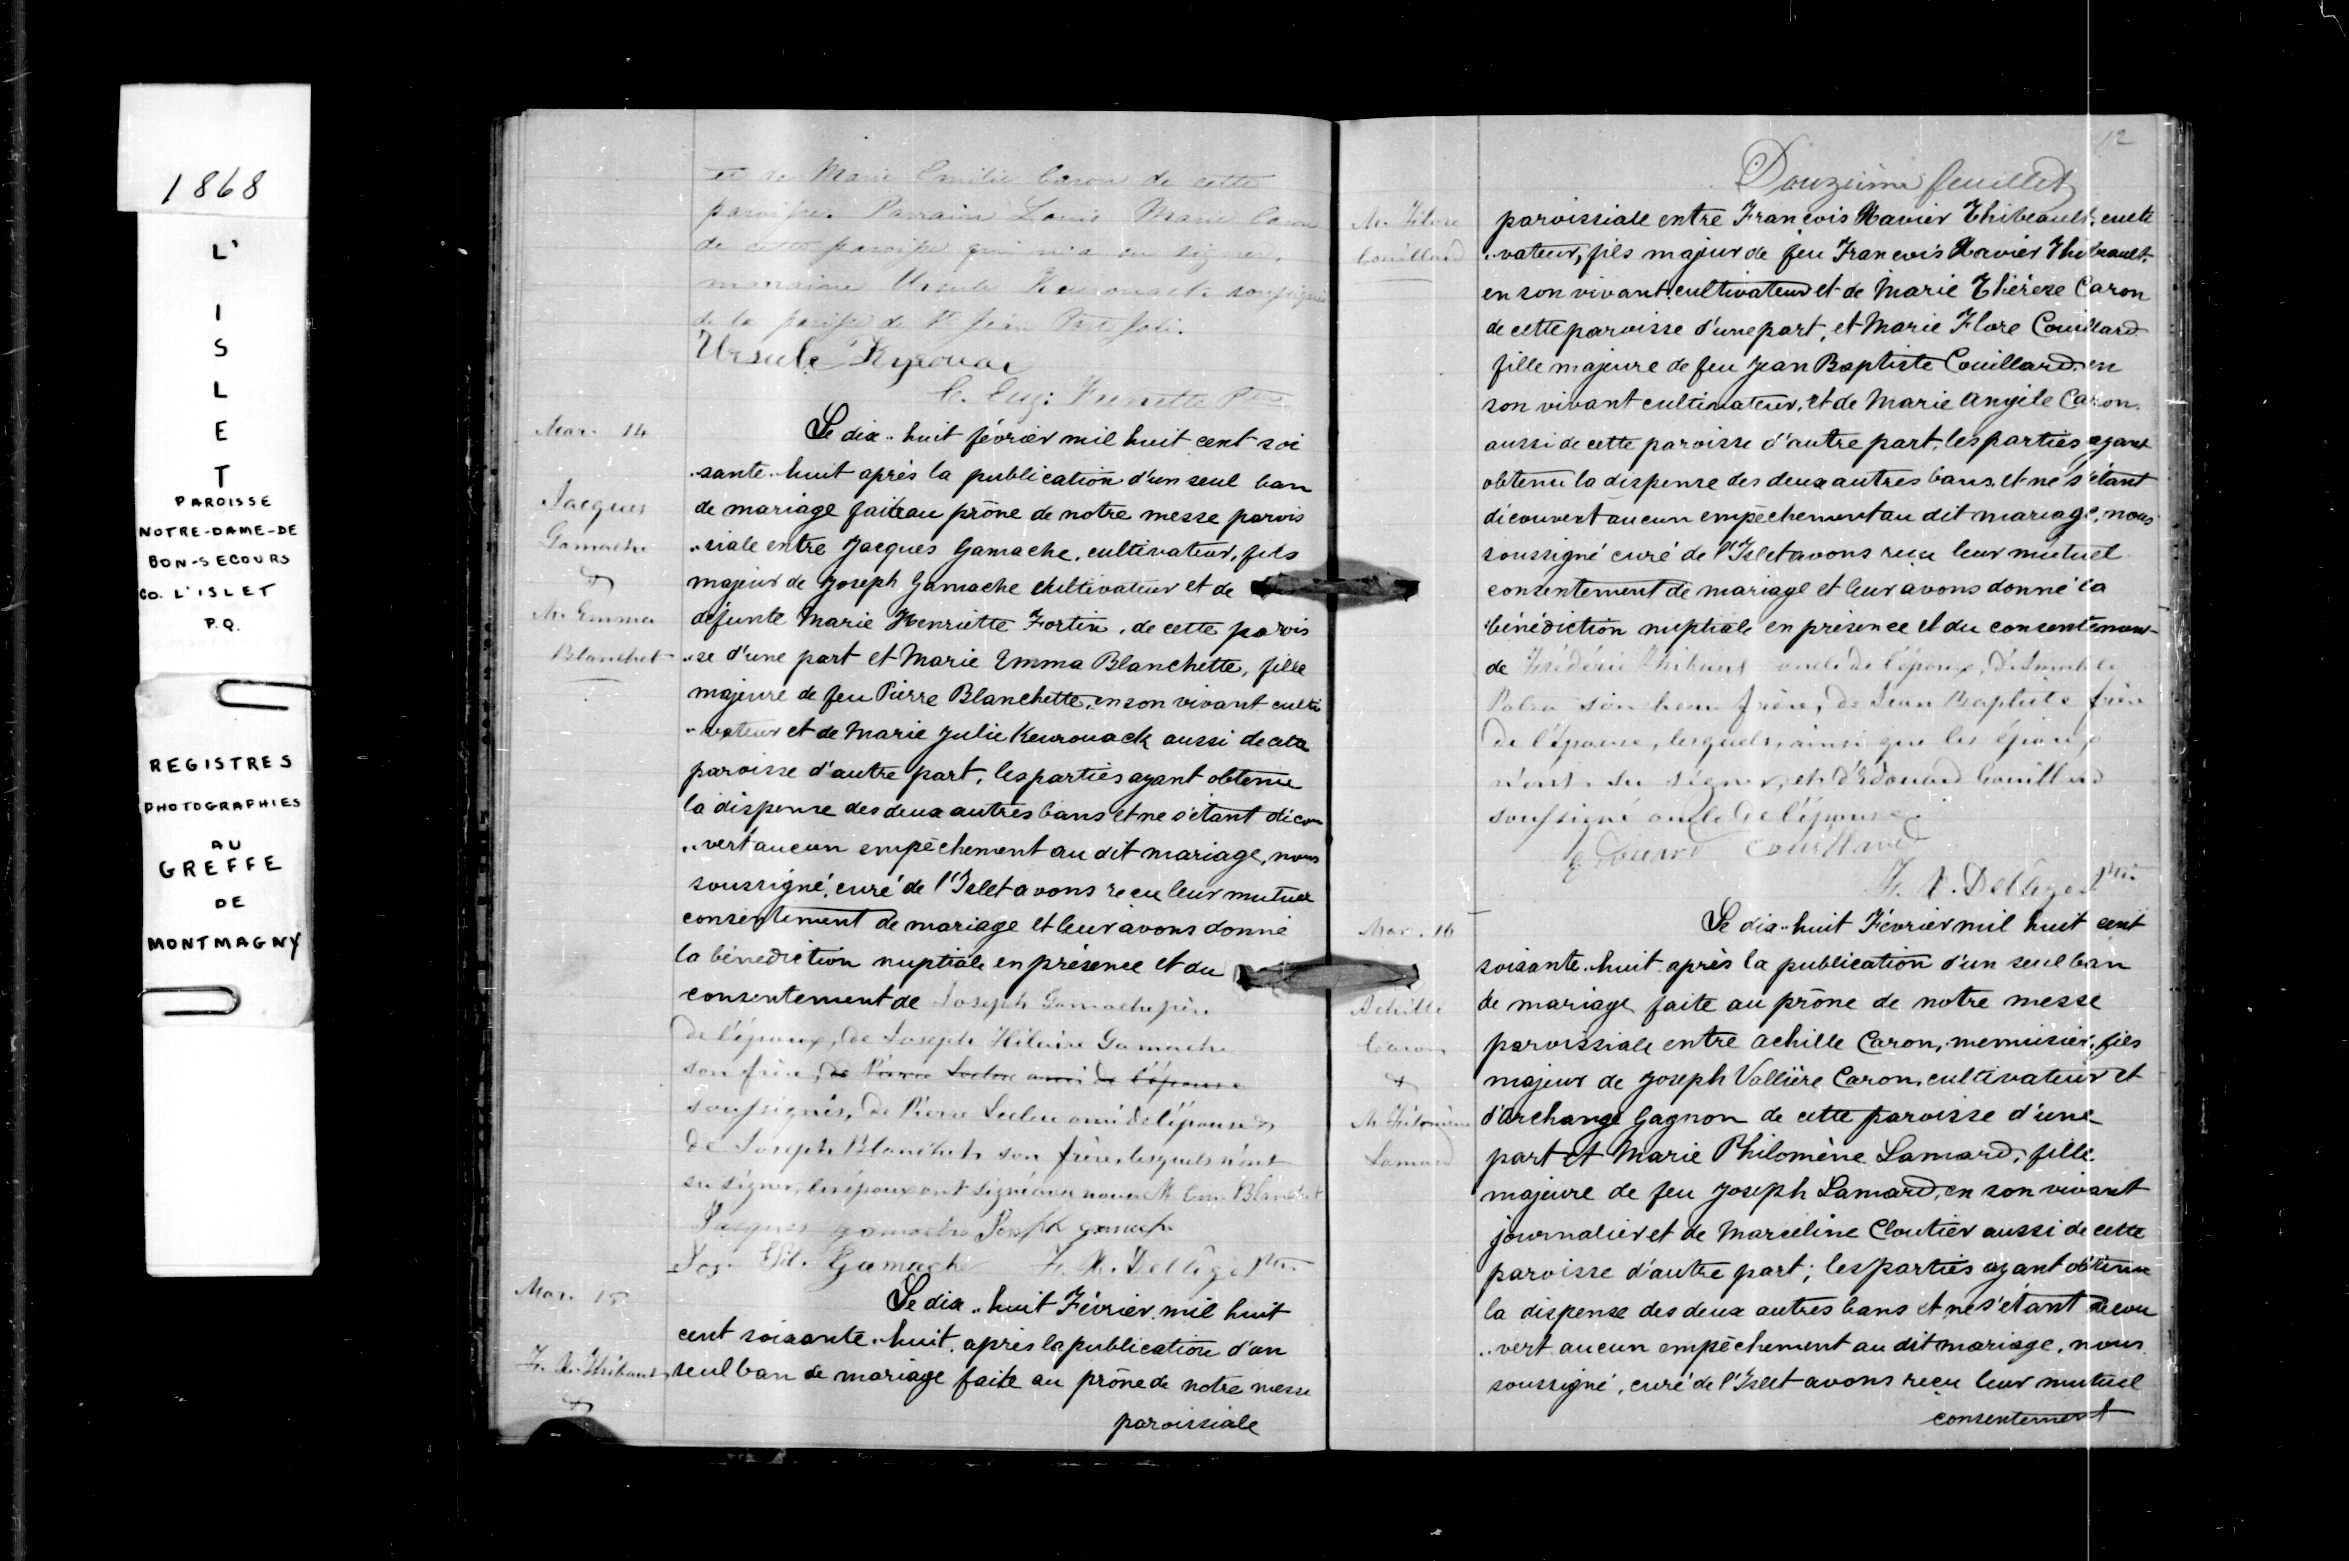 1868
L'
I
S
L
E
T
PAROISSE
NOTRE-DAME-DE
BON-SECOURS
CO. L'ISLET
P.Q.
REGISTRES
PHOTOGRAPHIES
AU
GREFFE
DE
MONTMAGNY
et de Marie Emilie Caron de cette
paroisse. Parrain Louis Marie Caron
de cette paroisse qui n'a su signer.
marraine Ursule Keurouack soussignée
de la paroisse de St Jean Port Joli.
Ursule Kyrouac
C. Eug: Frenette Ptre
Mar. 14
Jacques
Gamache
&
M. Emma
Blanchet
Le dix-huit février mil huit cent soi
"xante-huit après la publication d'un seul ban
de mariage faite au prône de notre messe parois
"siale entre Jacques Gamache, cultivateur, fils
majeur de Joseph Gamache cultivateur et de
défunte Marie Henriette Fortin, de cette parois
"se d'une part et Marie Emma Blanchette, fille
majeure de feu Pierre Blanchette, en son vivant culti
"vateur et de Marie Julie Keurouack aussi de cette
paroisse d'autre part, les parties ayant obtenu
la dispense des deux autres bans et ne s'étant décou
"vert aucun empêchement au dit mariage, nous
soussigné, curé de l'Islet avons reçu leur mutuel
consentement de mariage et leur avons donné
la bénédiction nuptiale en présence et du
consentement de Joseph Gamache père
de l'époux, de Joseph Hilaire Gamache
son frère, de Pierre Leclerc ami de l'épouse
soussignés, de Pierre Leclerc ami de l'épouse &
de Joseph Blanchet son frère, lesquels n'ont
su signer, les époux ont signé avec nous. M. Emma Blanchet
Jacques gamache Joseph gamache
Jos. Hil. Gamache F. X. Delâge Ptre
Mar. 15
F. X. Thibault
&
Le dix-huit Février mil huit
cent soixante-huit, après la publication d'un
seul ban de mariage faite au prône de notre messe
paroissiale
12
Douzième feuillet
M. Flore
Couillard
paroissiale entre François Xavier Thibeault, culti
"vateur, fils majeur de feu François Xavier Thibeault
en son vivant cultivateur et de Marie Thérèse Caron
de cette paroisse d'une part, et Marie Flore Couillard
fille majeure de feu Jean Baptiste Couillard, en
son vivant cultivateur, et de Marie Angèle Caron,
aussi de cette paroisse d'autre part, les parties ayant
obtenu la dispense des deux autres bans, et ne s'étant
découvert aucun empêchement au dit mariage, nous
soussigné curé de l'Islet avons reçu leur mutuel
consentement de mariage et leur avons donné la
bénédiction nuptiale en présence et du consentement
de Frédéric Thibault oncle de l'époux,
son beau frère, de Jean Baptiste frère
de l'épouse, lesquels, ainsi que les époux
n'ont su signer, et d'Edouard Couillard
soussigné oncle de l'épouse.
Edouard Couillard
F. X. Delâge Ptre
Mar. 16
Achille
Caron
&
M. Philomène
Lamard
Le dix-huit Février mil huit cent
soixante-huit après la publication d'un seul ban
de mariage faite au prône de notre messe
paroissiale entre Achille Caron, menuisier, fils
majeur de Joseph Vallière Caron, cultivateur et
d'Archange Gagnon de cette paroisse d'une
part et Marie Philomène Lamard, fille
majeure de feu Joseph Lamard, en son vivant
journalier et de Marceline Cloutier aussi de cette
paroisse d'autre part; les parties ayant obtenu
la dispense des deux autres bans et ne s'étant décou
"vert aucun empêchement au dit mariage, nous
soussigné, curé de l'Islet avons reçu leur mutuel
consentement